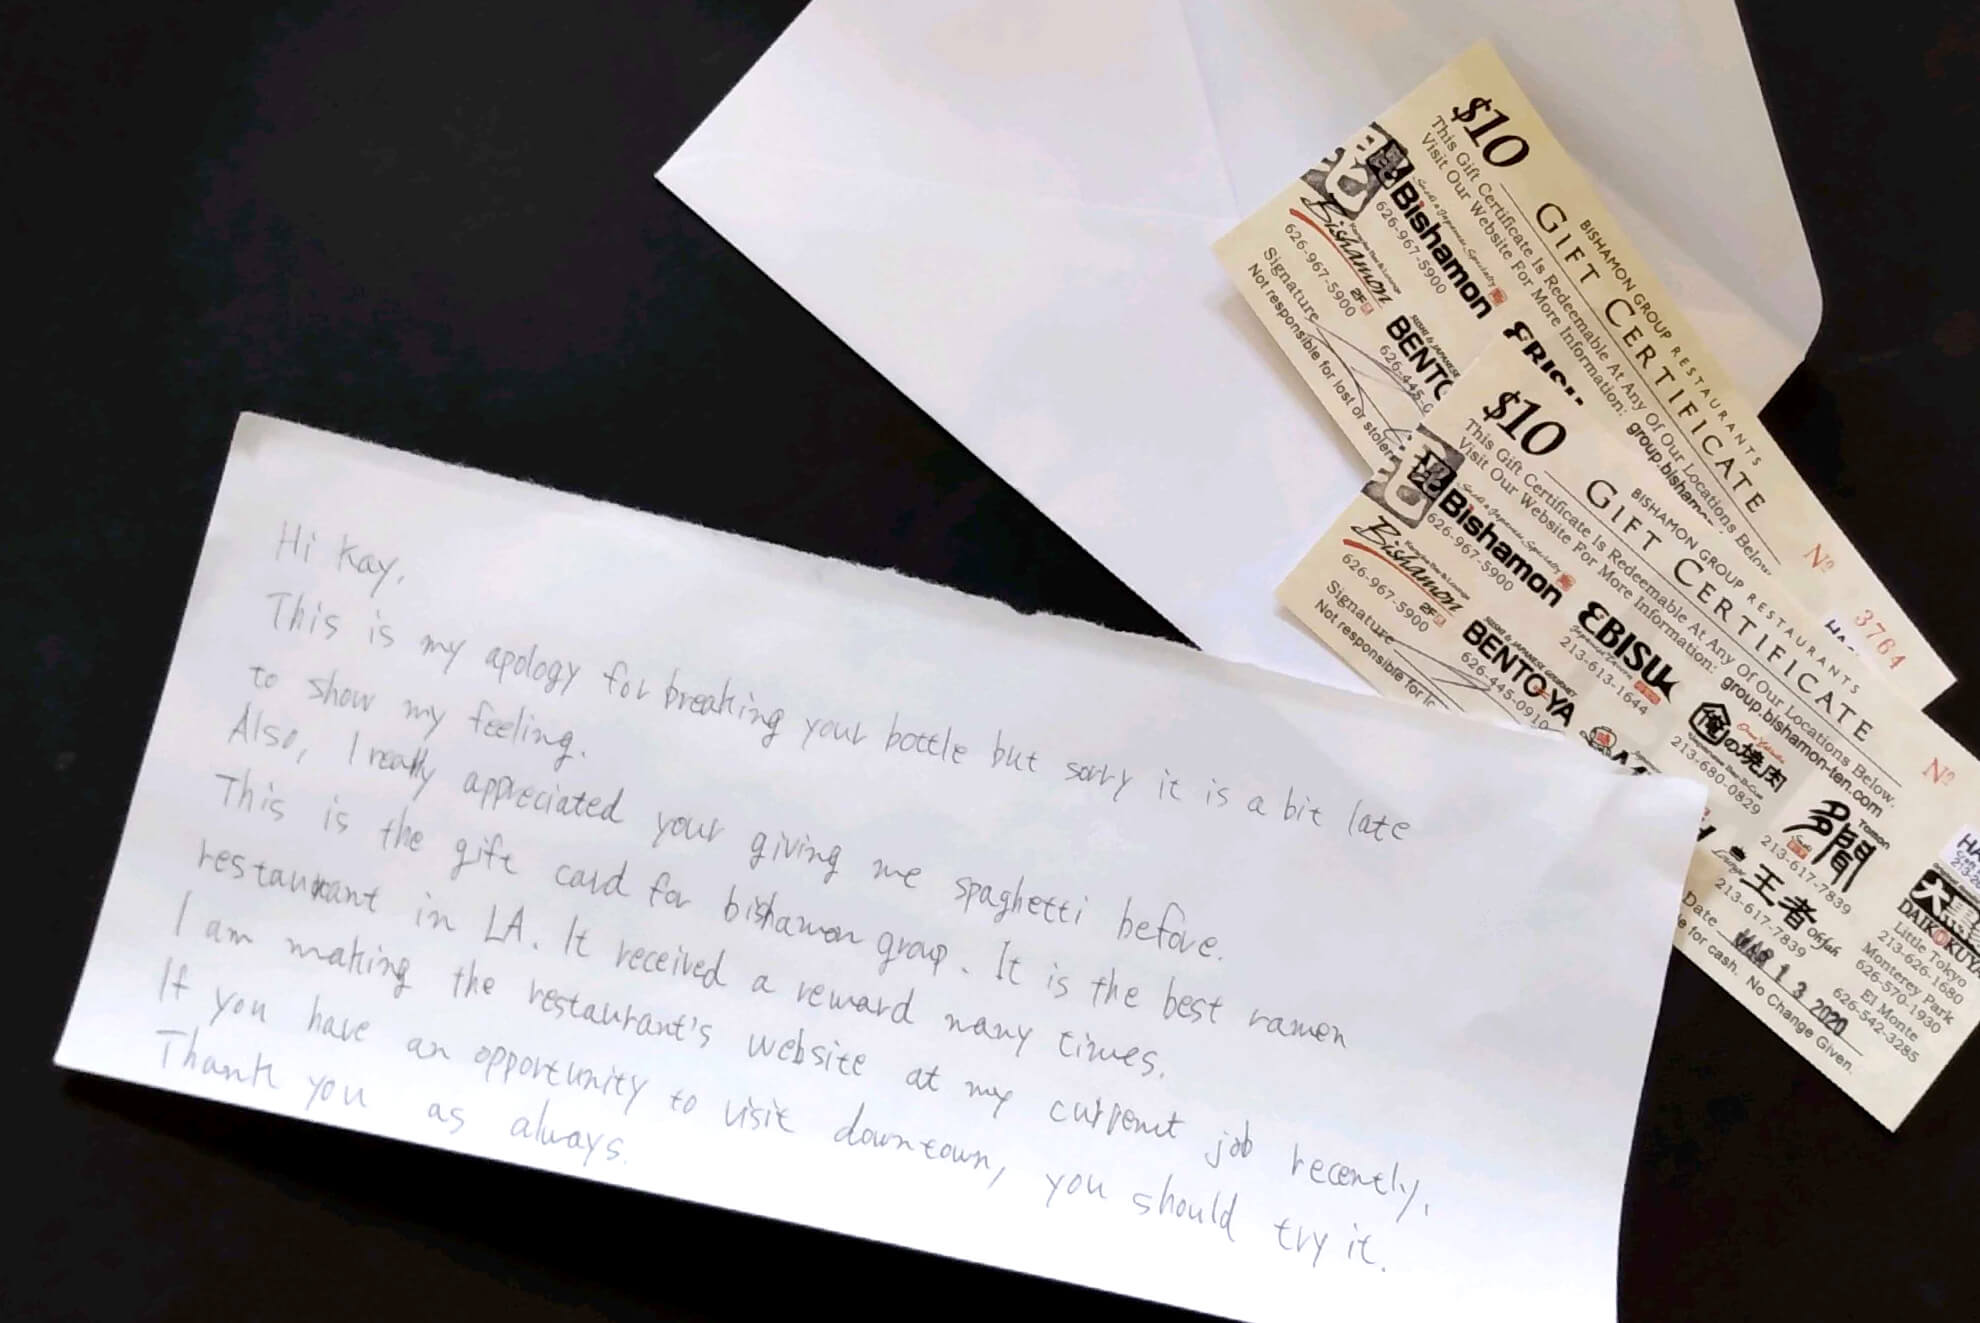 Hi Kay,
This is my apology for breaking your bottle but sorry it is a bit late
to show my feeling.
Also, I really appreciated your giving me spaghetti before.
This is the gift card for bishamon group. It is the best ramen
restaurant in LA. It received a reward many times.
I am making the restaurant's website at my current job recently.
If you have an opportunity to visit downtown, you should try it.
Thank you as always.
$10
BISHAMON GROUP RESTAURANTS
GIFT CERTIFICATE
This Gift Certificate Is Redeemable At Any Of Our Locations Below.
Visit Our Website For More Information: group.bisham
Bishamon
626-967-5900
Bishamon 2F
626-967-5900
BENTO
626-445-0
Signature
Not responsible for lost or stolen
Nº 3764
$10
BISHAMON GROUP RESTAURANTS
GIFT CERTIFICATE
This Gift Certificate Is Redeemable At Any Of Our Locations Below.
Visit Our Website For More Information: group.bishamon-ten.com
Nº
Bishamon
626-967-5900
EBISU
213-613-1644
俺の焼肉
213-680-0829
多聞 Tamon
213-617-7839
Bishamon 2F
626-967-5900
BENTO-YA
626-445-0910
王者 Ohjah
213-617-7839
DAIKOKUYA
Little Tokyo
213-626-1680
Monterey Park
626-570-1930
El Monte
626-542-3285
Signature
Date MAR 13 2020
Not responsible for lo
e for cash. No Change Given.